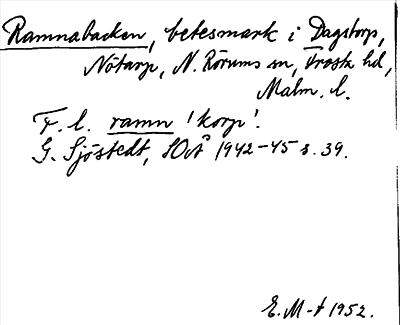 Ramnabacken, betesmark i Dagstorp,
Nötarp, N. Rörums sn, Frosta hd,
Malm. l.
F. l. ramn 'korp'.
G. Sjöstedt, SOÅ 1942-45 s. 39.
E. M-t 1952.